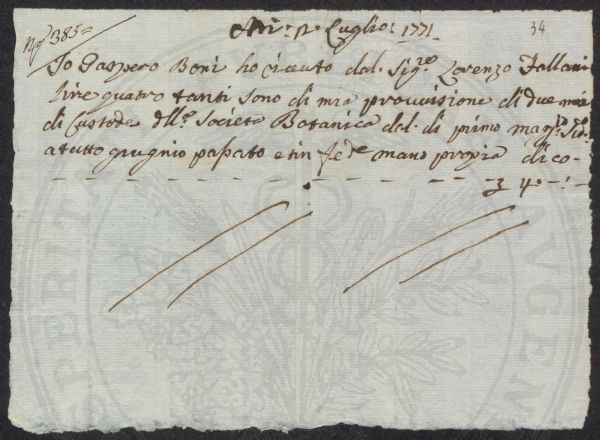 N.º 385=
Adi: p.º Luglio: 1771
34
Io Gaspero Boni ho riceuto dal. Sig.re Lorenzo Fallani
lire quatro tanti sono di mia provvisione di due mesi
di Custode dll.ª Società Botanica dal. di primo mag.º
a tutto giugnio passato e tin fede mano propia dico-
4.-:-
PERITA
AVGEN